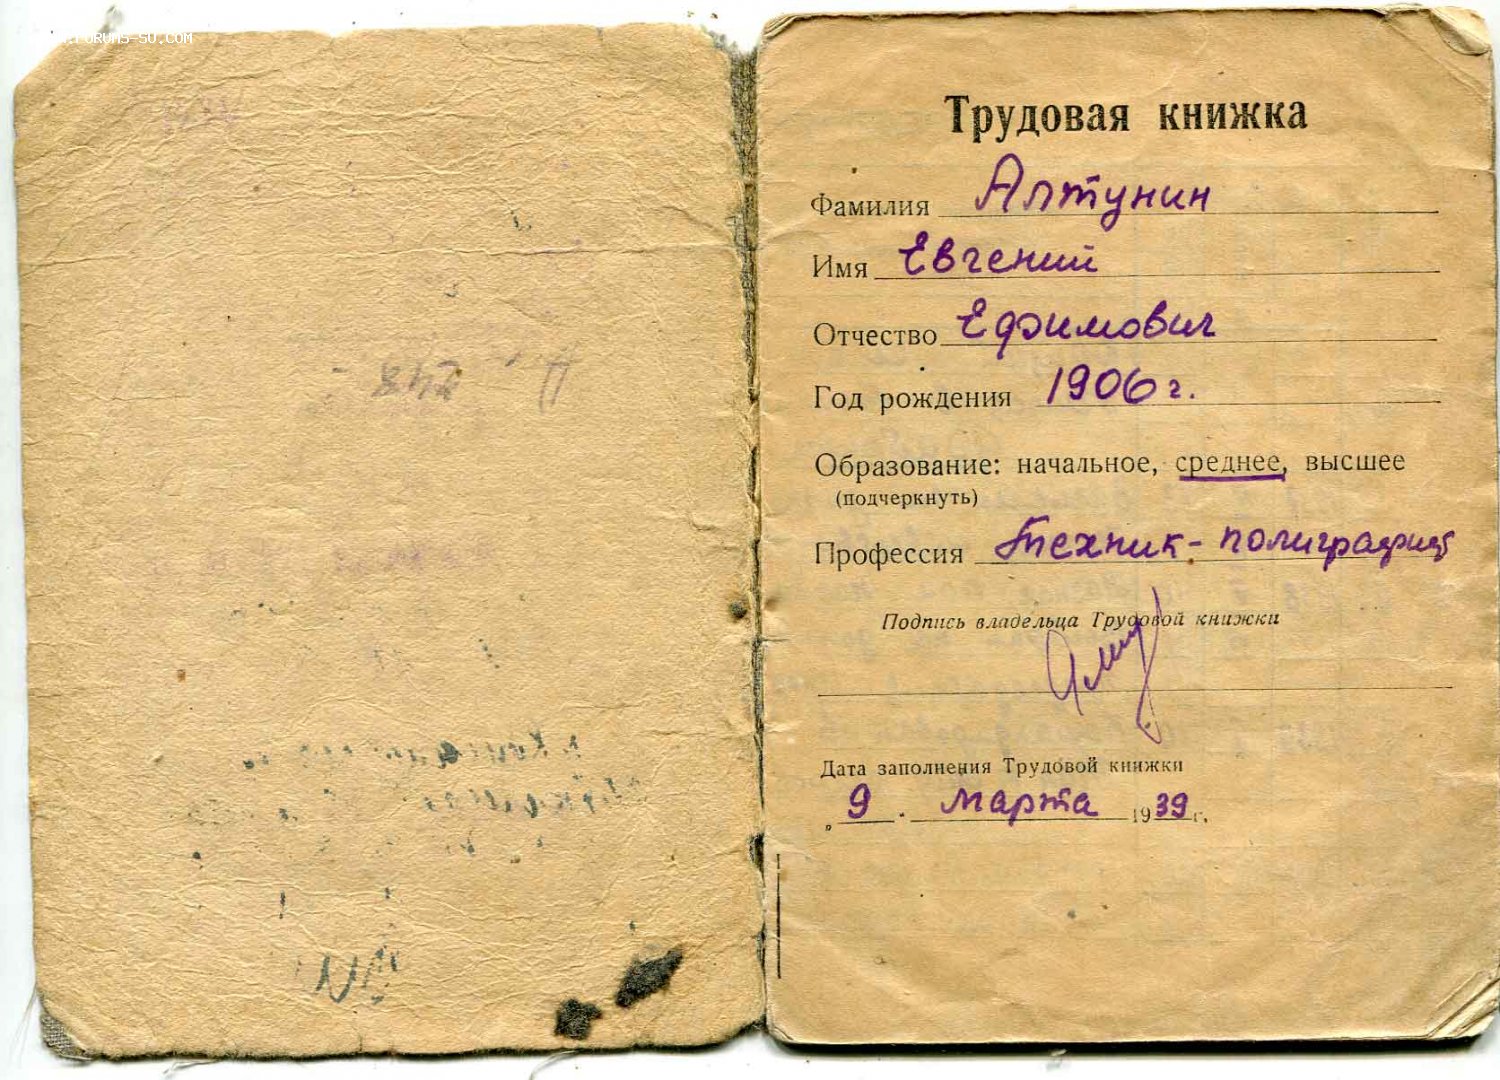 FORUMS-SU.COM
Трудовая книжка
Фамилия Алтунин
Имя Евгений
Отчество Ефимович
Год рождения 1906 г.
Образование: начальное, среднее, высшее
(подчеркнуть)
Профессия Техник-полиграфист
Подпись владельца Трудовой книжки
Дата заполнения Трудовой книжки
„ 9 " марта 1939 г.